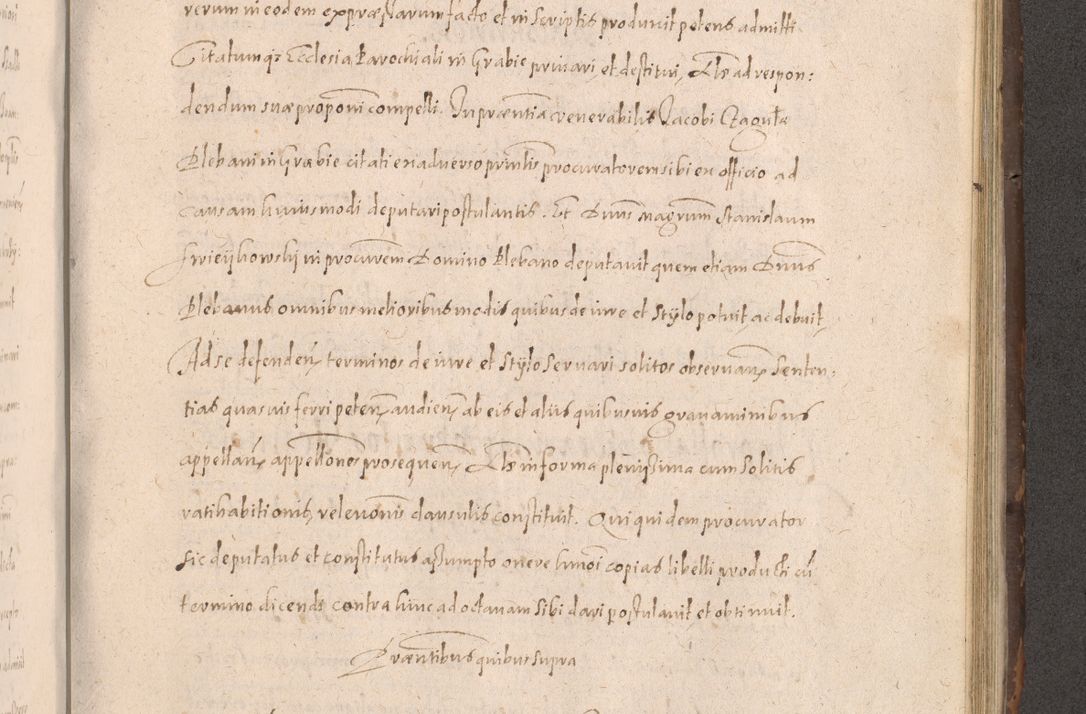 rerum in eodem expræssarum facto et in scriptis produxit petens admitti
Citatumqз Ecclesia Parochiali in Grabie privari et destitui, Alse ad respon:
dendum suæ proponi compelli. In præntia venerabilis Jacobi Czagoula
Plebani in Grabie citati ex adverso prñtis procuratorem sibi ex officio ad
causam huiusmodi deputari postulantis. Et Dnus Magrum Stanislaum
Swieijkowskij in procurem Domino Plebano deputavit quem etiam Dnus
Plebanus omnibus melioribus modis quibus de iure et Stÿlo potuit ac debuit,
Ad se defenden, terminos de iure et Stÿlo servari solitos observan, Senten,
tias quasvis ferri peten, audien, ab eis et aliis quibusvis gravaminibus
appellan, appellones prosequen, Alse in forma plenissima cum Solitis
ratihabitionis, relevonis clausulis constituit. Qui quidem procurator
sic deputatus et constitutus assumpto onere hmoi copias libelli producti cu
termino dicendi contra hinc ad octavam sibi dari postulavit et obtinuit.
Præntibus quibus supra